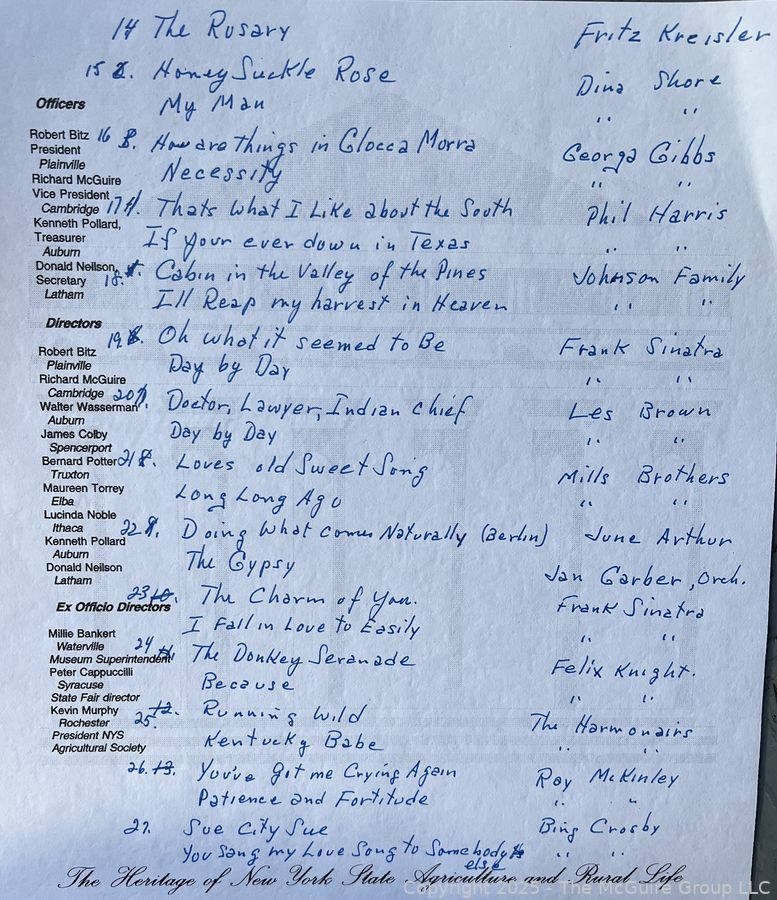 14 The Rosary Fritz Kreisler
15 2. Honey Suckle Rose Dina Shore
My Man " "
16 3. How are things in Glocca Morra Georga Gibbs
Necessity " "
17 4. Thats what I Like about the South Phil Harris
If your ever down in Texas " "
18. 5. Cabin in the Valley of the Pines Johnson Family
Ill Reap my harvest in Heaven " "
19 6. Oh what it seemed to Be Frank Sinatra
Day by Day " "
20 7. Doctor, Lawyer, Indian Chief Les Brown
Day by Day " "
21 8. Loves old Sweet Song Mills Brothers
Long Long Ago " "
22 9. Doing What comes Naturally (Berlin) June Arthur
The Gypsy Jan Garber, Orch.
23 10. The Charm of You. Frank Sinatra
I Fall in Love to Easily " "
24 11. The Donkey Seranade Felix Knight.
Because " "
25. 12. Running Wild The Harmonairs
Kentucky Babe " "
26. 13. You've got me Crying Again Ray McKinley
Patience and Fortitude " "
27. Sue City Sue Bing Crosby
You Sang my Love Song to Somebody else " "
Officers
Robert Bitz
President
Plainville
Richard McGuire
Vice President
Cambridge
Kenneth Pollard,
Treasurer
Auburn
Donald Neilson,
Secretary
Latham
Directors
Robert Bitz
Plainville
Richard McGuire
Cambridge
Walter Wasserman
Auburn
James Colby
Spencerport
Bernard Potter
Truxton
Maureen Torrey
Elba
Lucinda Noble
Ithaca
Kenneth Pollard
Auburn
Donald Neilson
Latham
Ex Officio Directors
Millie Bankert
Waterville
Museum Superintendent
Peter Cappuccilli
Syracuse
State Fair director
Kevin Murphy
Rochester
President NYS
Agricultural Society
The Heritage of New York State Agriculture and Rural Life
Copyright 2025 - The McGuire Group LLC